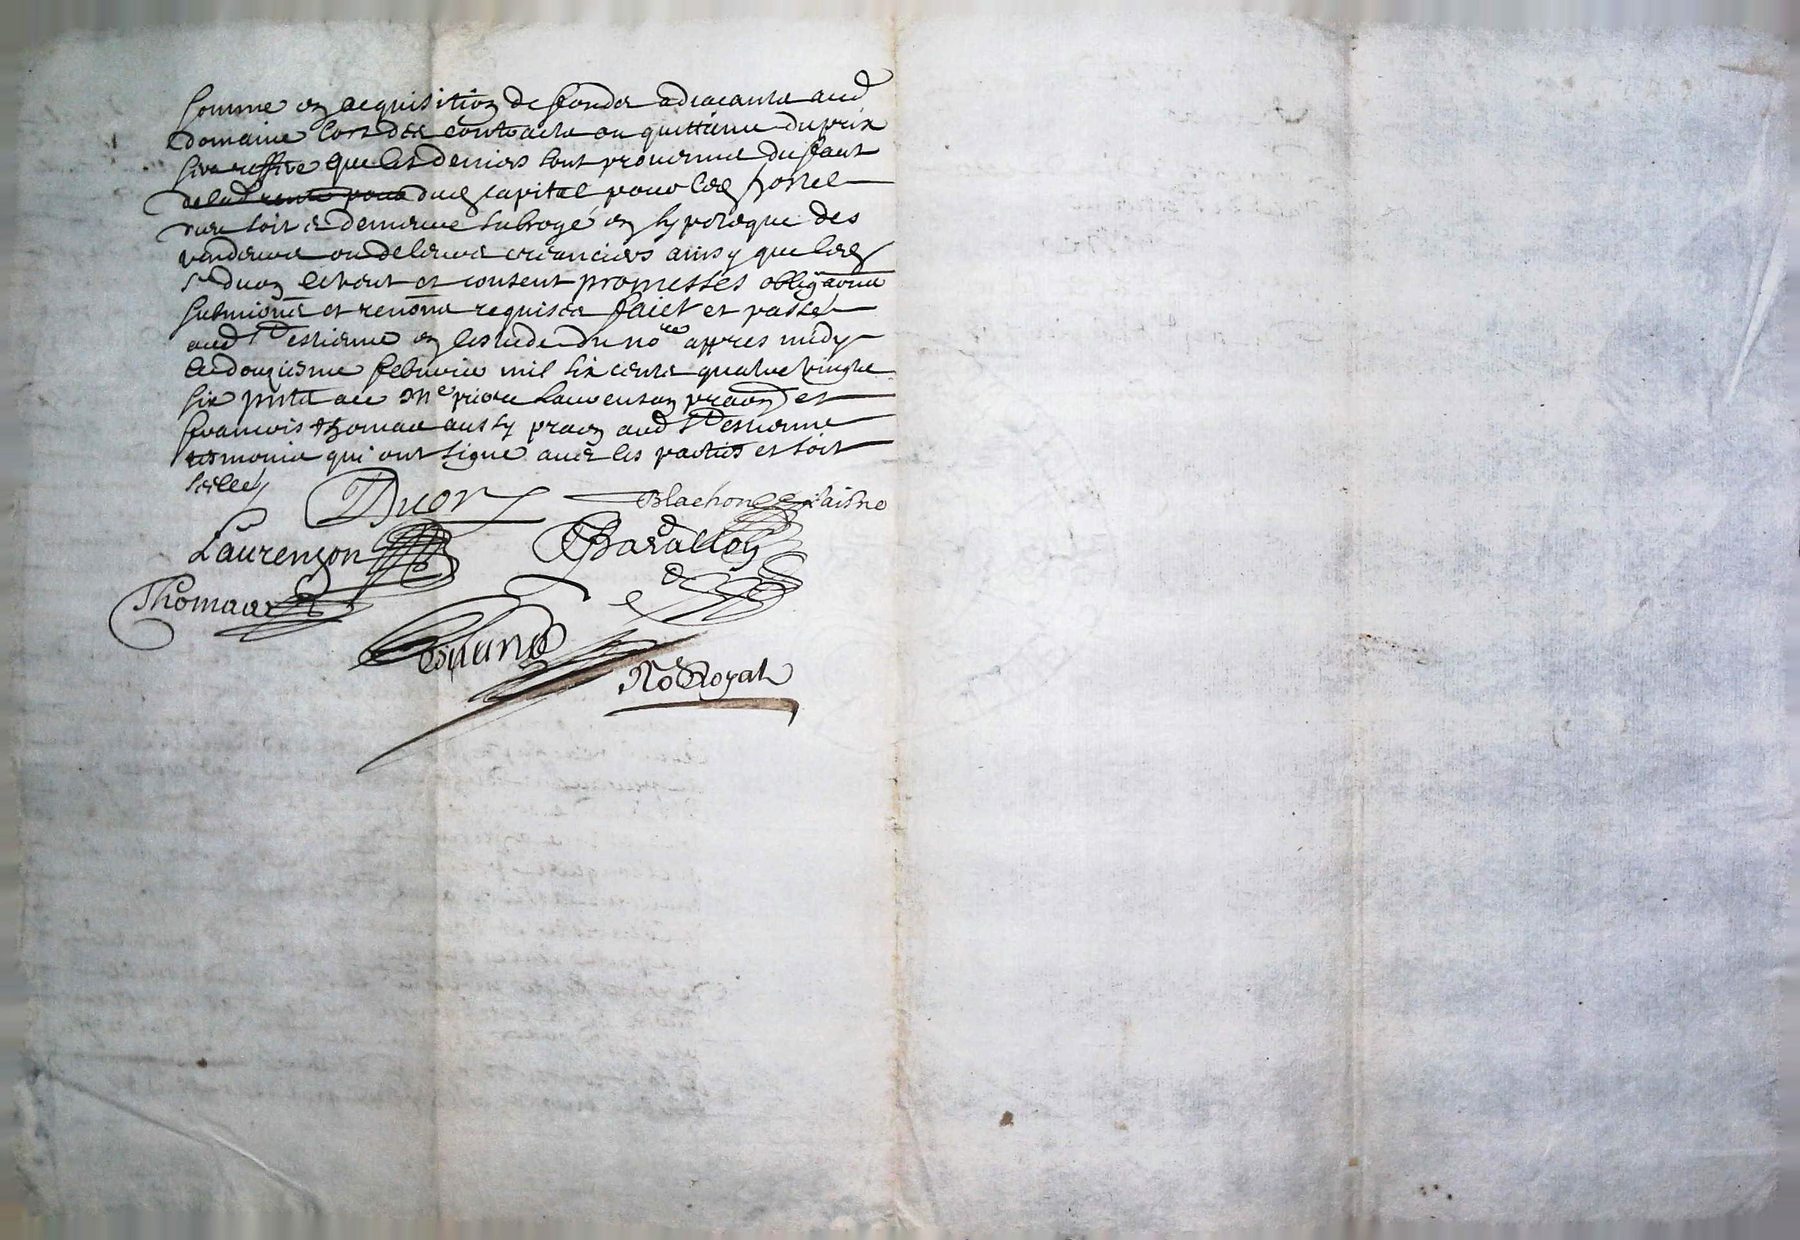 somme en acquisition de fondz adiacants aud
domaine lors des contracts ou quittance du prix
sera que les deniers sont prouenus dusd
de lad rente pour dud capital pour led
soit et demeure subrogé en hypoteque des
vendeurs ou de leurs creanciers ainsy que led
sr Duon et consent promesses obligaõns
submiõns et renõns requises faict et passé
aud St Estienne en lestude du nore appres midy
le douziesme febvrier mil six cents quatre vingts
six pnts ace Me pierre Laurenson praõn et
francois Thomas aussy praõn aud St Estienne
tesmoins qui ont signe auec les parties et soit
seellé
Duon Blachon laisné
Laurenson Barallon
Thomas
No Royal